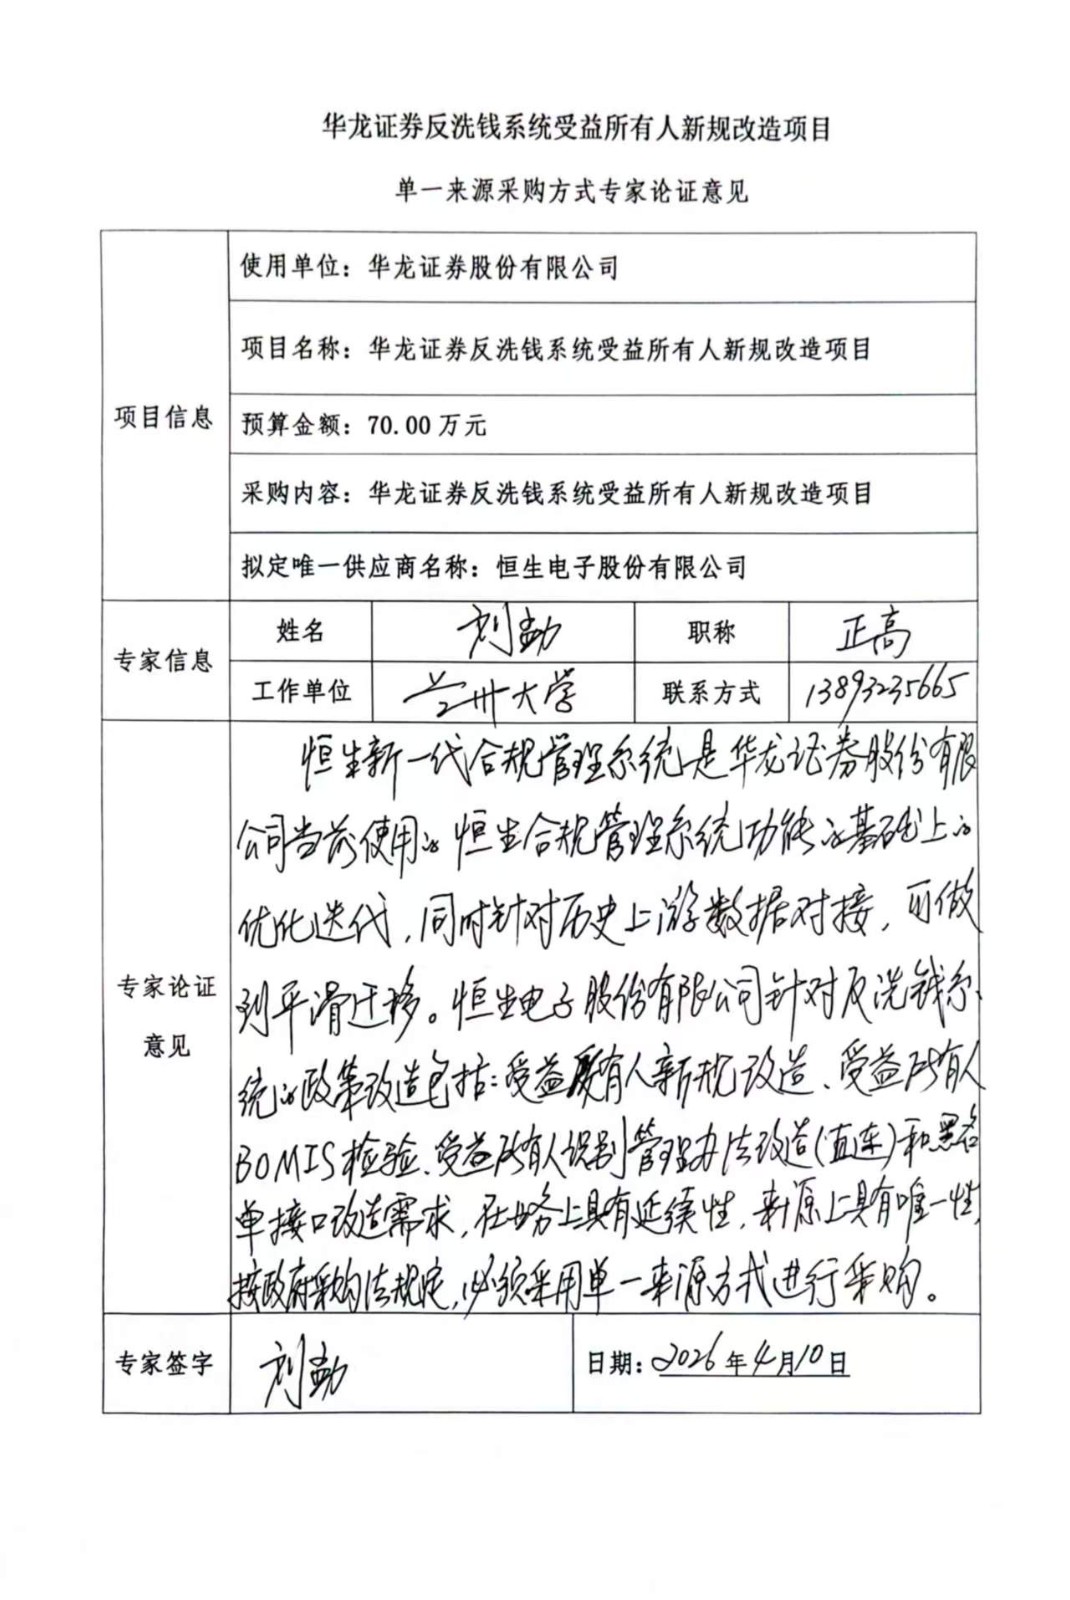 华龙证券反洗钱系统受益所有人新规改造项目
单一来源采购方式专家论证意见
项目信息
使用单位：华龙证券股份有限公司
项目名称：华龙证券反洗钱系统受益所有人新规改造项目
预算金额：70.00万元
采购内容：华龙证券反洗钱系统受益所有人新规改造项目
拟定唯一供应商名称：恒生电子股份有限公司
专家信息
姓名 刘勐 职称 正高
工作单位 兰州大学 联系方式 13893235665
专家论证
意见
恒生新一代合规管理系统是华龙证券股份有限
公司当前使用的恒生合规管理系统功能的基础上的
优化迭代，同时针对历史上游数据对接，可做
到平滑迁移。恒生电子股份有限公司针对反洗钱系
统的政策改造包括：受益所有人新规改造、受益所有人
BOMIS检验、受益所有人识别管理办法改造(直连)和黑名
单接口改造需求，在业务上具有延续性，来源上具有唯一性，
按政府采购法规定，必须采用单一来源方式进行采购。
专家签字 刘勐 日期：2026年4月10日